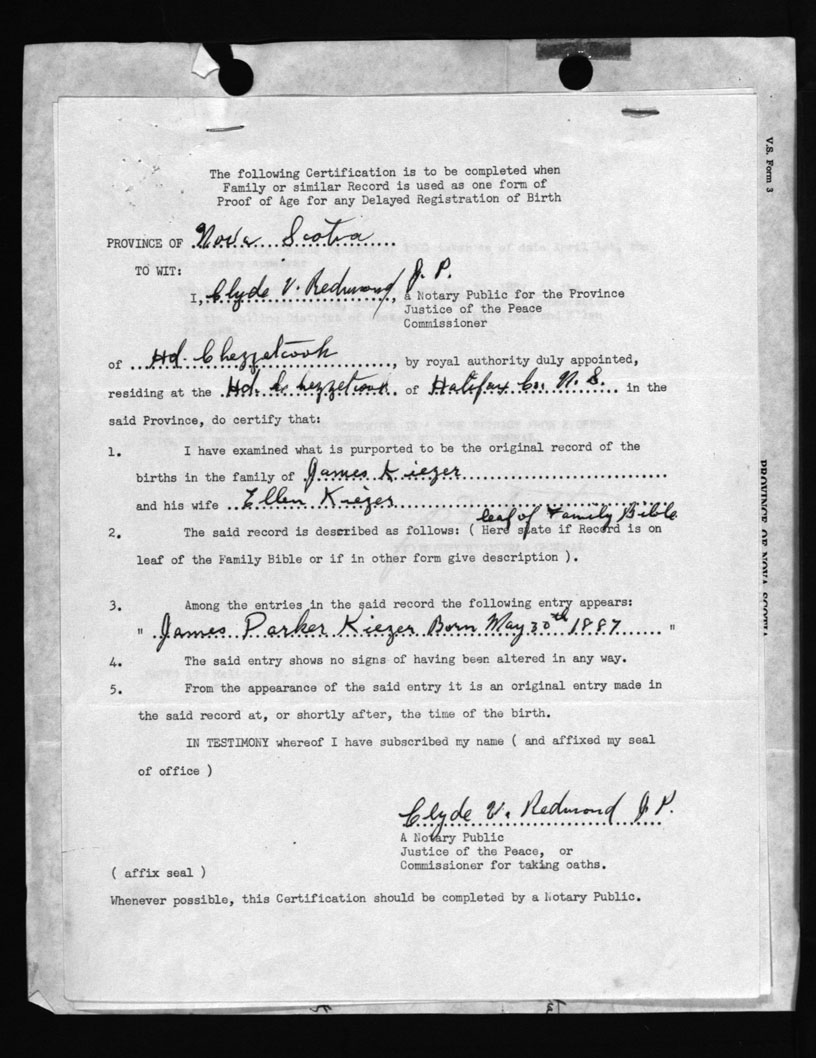 The following Certification is to be completed when
Family or similar Record is used as one form of
Proof of Age for any Delayed Registration of Birth
PROVINCE OF Nova Scotia
TO WIT:
I, Clyde V. Redmond J. P., a Notary Public for the Province
Justice of the Peace
Commissioner
of Hd. Chezzetcook, by royal authority duly appointed,
residing at the Hd. Chezzetcook of Halifax Co. N. S. in the
said Province, do certify that:
1. I have examined what is purported to be the original record of the
births in the family of James Kiezer
and his wife Ellen Kiezer
leaf of Family Bible
2. The said record is described as follows: ( Here state if Record is on
leaf of the Family Bible or if in other form give description ).
3. Among the entries in the said record the following entry appears:
" James Parker Kiezer Born May 30th 1887 "
4. The said entry shows no signs of having been altered in any way.
5. From the appearance of the said entry it is an original entry made in
the said record at, or shortly after, the time of the birth.
IN TESTIMONY whereof I have subscribed my name ( and affixed my seal
of office )
Clyde V. Redmond J P.
A Notary Public
Justice of the Peace, or
Commissioner for taking oaths.
( affix seal )
Whenever possible, this Certification should be completed by a Notary Public.
V.S. Form 3
PROVINCE OF NOVA SCOTIA